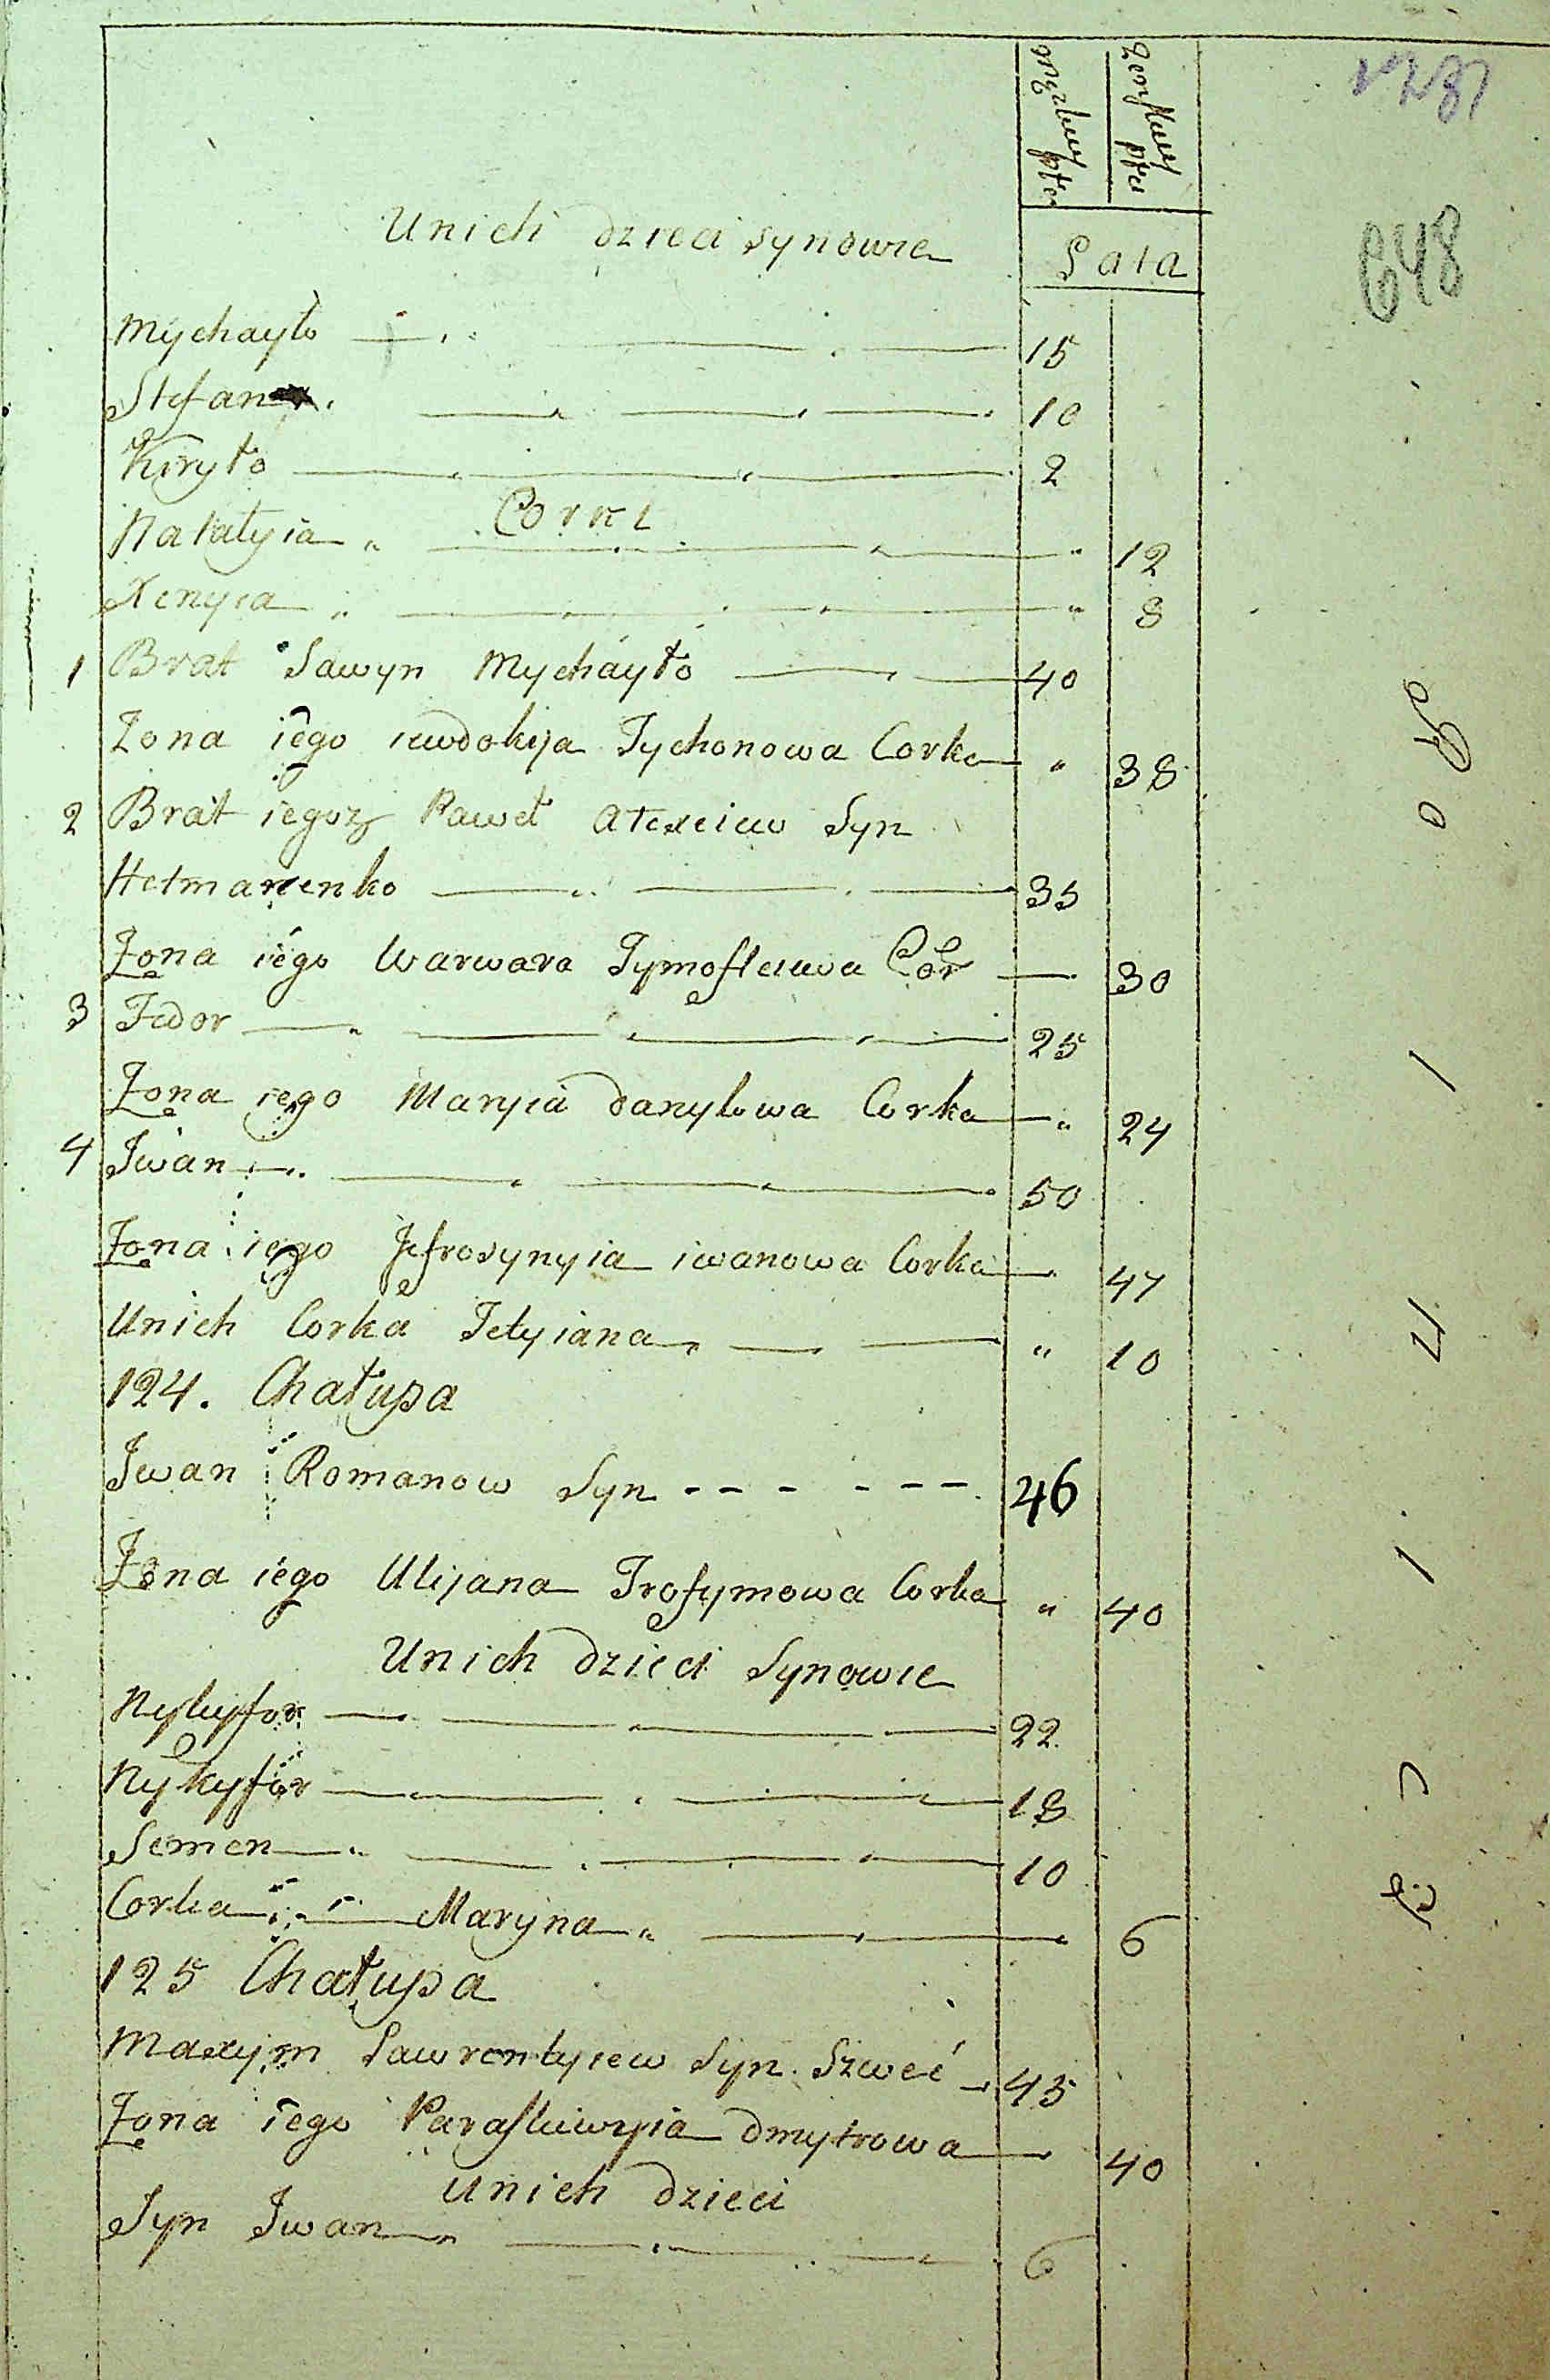 Męzkiey płci
Zenskiey płci
648
Unich dzieci synowie
Lata
Mychayło 15
Stefan 10
Kiryło 2
Corki
Natałyia 12
Xenyia 8
1 Brat Sawyn Mychayło 40
Zona iego iewdokija Tychonowa Corka 38
2 Brat iegoz Paweł Alexeiew Syn
Hetmanenko 35
Zona iego Warwara Tymofieiewa Cor 30
3 Fedor 25
Zona iego Maryia danylowa Corka 24
4 Iwan 50
Zona iego Jefrosynyia iwanowa Corka 47
Unich Corka Tetyiana 10
124. Chałupa
Iwan Romanow Syn 46
Zona iego Ulijana Trofymowa Corka 40
Unich dzieci Synowie
Nykyfor 22
Nykyfor 18
Semen 10
Corka Maryna 6
125 Chałupa
Maxym Lawrentyiew Syn Szweć 45
Zona iego Paraskiewyia dmytrowa 40
Unich dzieci
Syn Iwan 6